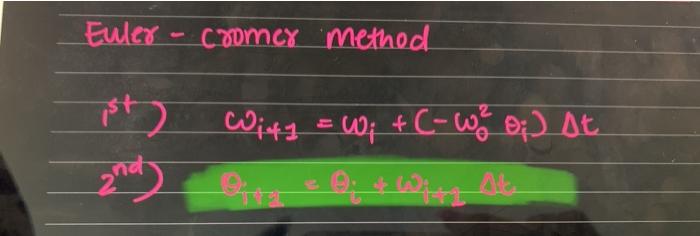 Euler - cromer method
1st) ωi+1 = ωi + (-ω0² θi) Δt
2nd) θi+1 = θi + ωi+1 Δt